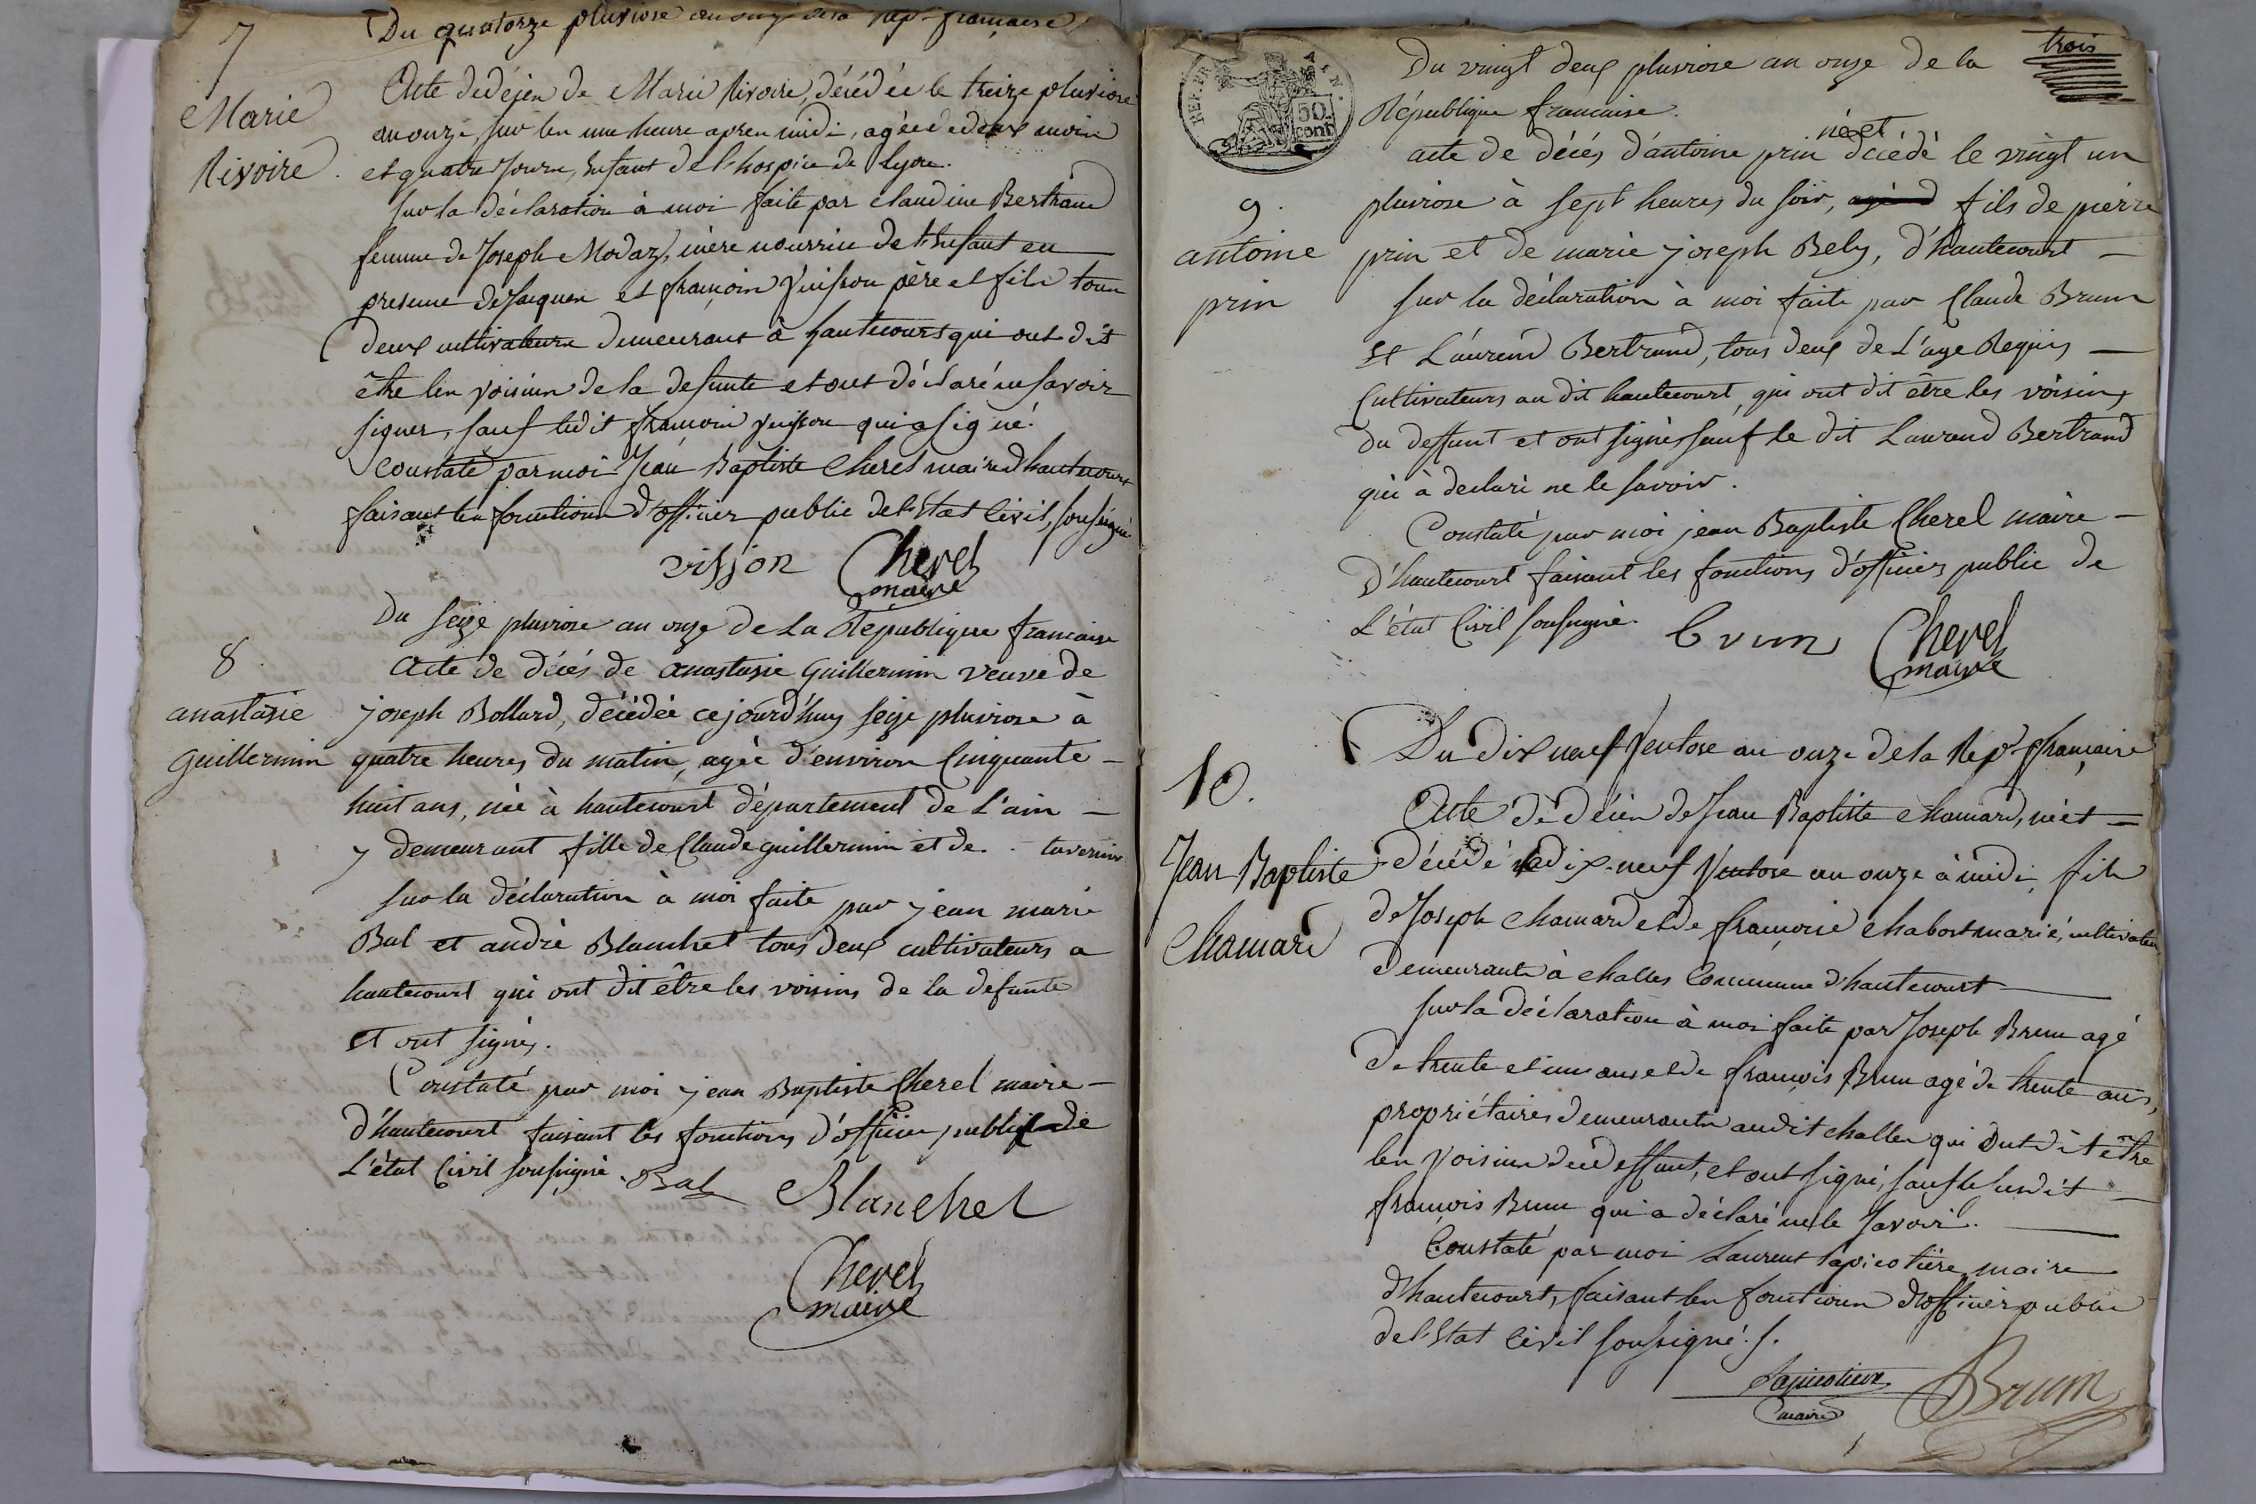 7
Du quatorze pluviose an onze de la rep.e francaise
Marie
Rivoire.
Acte de décès de Marie Rivoire, décédée le treize pluviose
an onze, sur les une heure après midi, agée de deux mois
et quatre jours, enfant de l'hospice de Lyon.
sur la déclaration à moi faite par claudine Bertrand
femme de Joseph Modaz, mère nourrice de l'enfant en
presence de Jacques et françois Vuisson père et fils tous
deux cultivateurs demeurant à hautecourt qui ont dit
être les voisins de la defunte et ont déclaré ne savoir
signer, sauf ledit françois Vuisson qui a signé.
Constaté par moi Jean Baptiste Cherel maire d'hautecourt
faisant les fonctions d'officier public de l'Etat Civil, soussigné
vission Cherel
maire
8.
anastasie
guillermin
Du seize pluviose an onze de La République francaise
Acte de décés de anastasie guillermin veuve de
joseph Bollard, décédée cejourd'huy seize pluviose à
quatre heures du matin, agée d'environ Cinquante –
huit ans, née à hautecourt département de L'ain –
y demeurant fille de Claude guillermin et de . . tavernier
sur la déclaration à moi faite par jean marie
Bal et andré Blanchet tous deux cultivateurs a
hautecourt qui ont dit être les voisins de la defunte
et ont signés.
Constaté par moi jean Baptiste Cherel maire –
d'hautecourt faisant les fonctions d'officier public de
L'état Civil soussigné. Bal Blanchet
Cherel
maire
trois
REP. FRA. AIN.
50
cent
Du vingt deux pluviose an onze de la
République francaise.
9.
antoine
prin
né et
acte de décés d'antoine prin décédé le vingt un
pluviose à sept heures du soir, agé d fils de pierre
prin et de marie joseph Bely, d'hautecourt –
sur la déclaration à moi faite par Claude Brun
et Laurend Bertrand, tous deux de L'age Requis –
Cultivateurs au dit hautecourt, qui ont dit être les voisins
du deffunt et ont signés sauf le dit Laurend Bertrand
qui à declaré ne le savoir.
Constaté par moi jean Baptiste Cherel maire –
d'hautecourt faisant les fonctions d'officier public de
L'état Civil soussigné. brun Cherel
maire
10.
Jean Baptiste
Chamard
Du dix neuf Ventose an onze de la Rep.e française
Acte de décès de Jean Baptiste Chamard, né et –
décédé le dix-neuf Ventose an onze à midi, fils
de Joseph Chamard et de françoise Chabost mariés, cultivateurs
demeurants à Challes Commune d'hautecourt
sur la déclaration à moi faite par Joseph Brun agé
de trente et un ans et de françois Brun agé de trente ans,
propriétaires demeurants audit Challes qui ont dit être
les voisins du deffunt, et ont signé, sauf le susdit –
françois Brun qui a déclaré ne le savoir.
Constaté par moi Laurent Tapicotière maire
d'hautecourt, faisant les fonctions d'officier public
de l'Etat Civil soussigné.
maire Brun